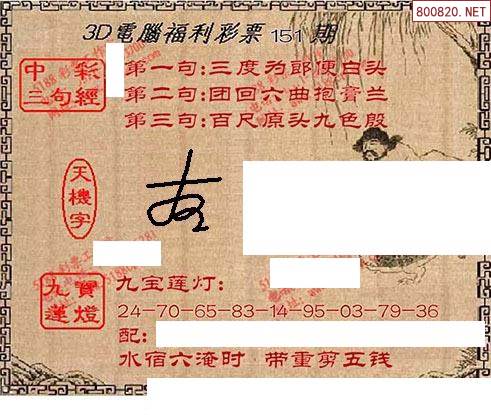 800820.NET
3D電腦福利彩票151期
中彩三句經
第一句:三度为郎便白头
第二句:团回六曲抱膏兰
第三句:百尺原头九色殷
天機字
九寶蓮燈
九宝莲灯:
24-70-65-83-14-95-03-79-36
配:
水宿六淹时 带重剪五钱